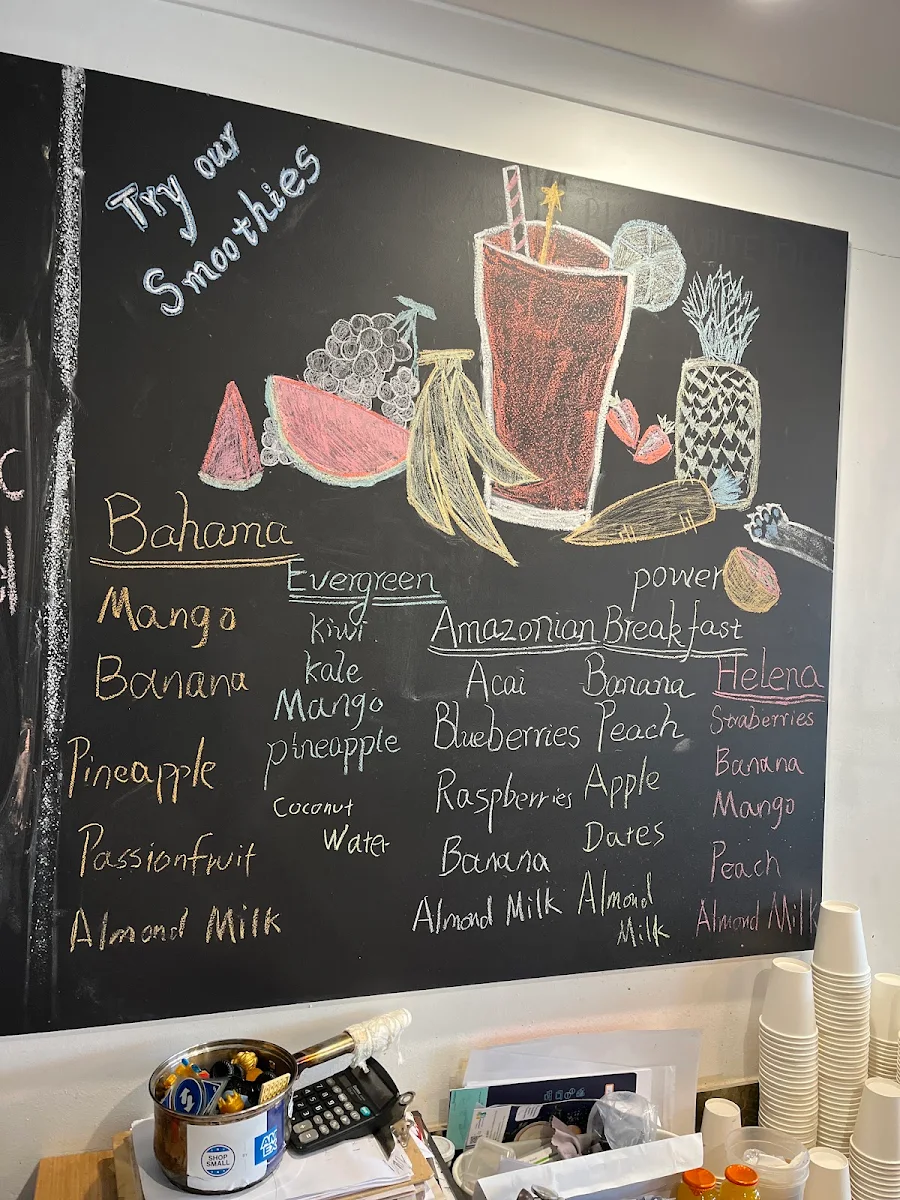 Try our
Smoothies
Bahama
Mango
Banana
Pineapple
Passionfruit
Almond Milk
Evergreen
kiwi
kale
Mango
pineapple
Coconut
Water
Amazonian
Acai
Blueberries
Raspberries
Banana
Almond Milk
power
Breakfast
Banana
Peach
Apple
Dates
Almond
Milk
Helena
Straberries
Banana
Mango
Peach
Almond Milk
SHOP
SMALL